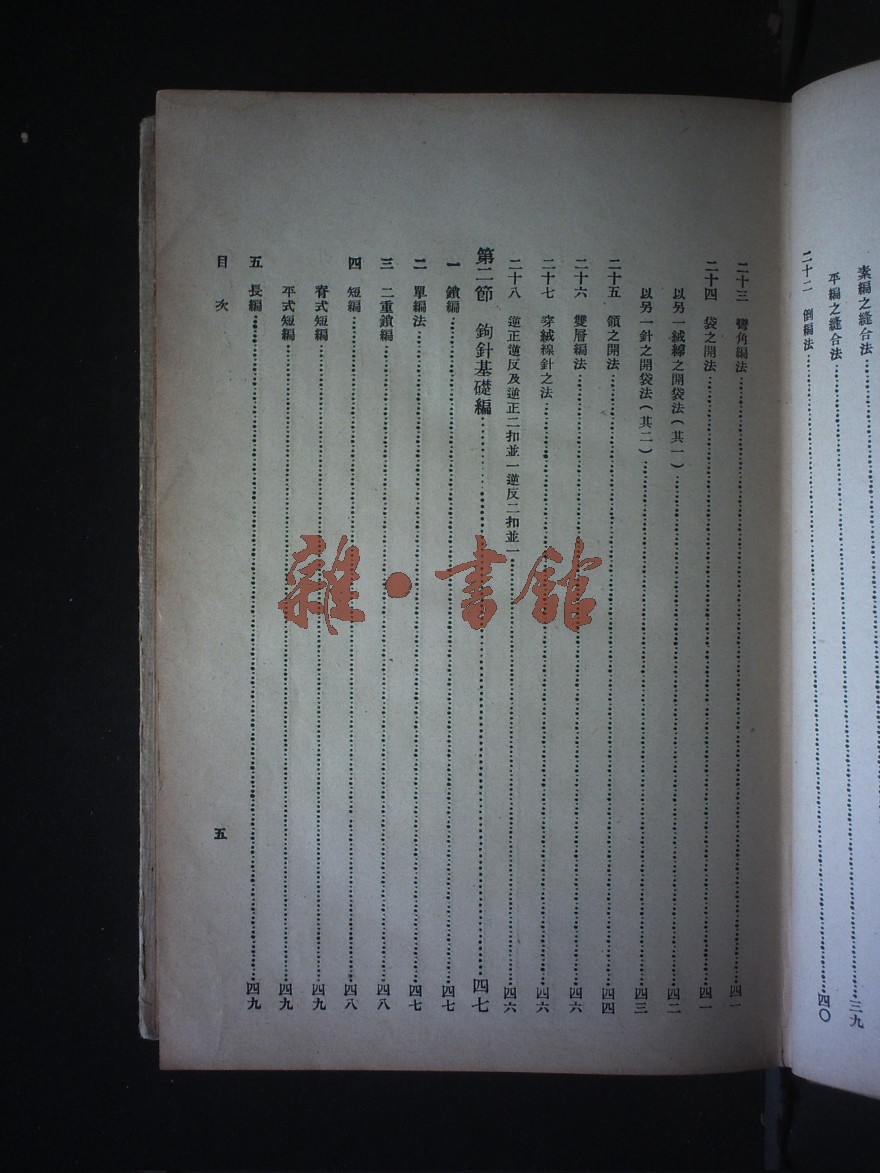 素編之縫合法……三九
平編之縫合法
二十二 倒編法……四〇
二十三 彎角編法……四一
二十四 袋之開法……四一
以另一絨線之開袋法(其一)……四二
以另一針之開袋法(其二)……四三
二十五 領之開法……四四
二十六 雙層編法……四六
二十七 穿絨線針之法……四六
二十八 逆正逆反及逆正二扣並一逆反二扣並一……四六
第二節 鉤針基礎編……四七
一 鎖編……四七
二 單編法……四七
三 二重鎖編……四八
四 短編……四八
脊式短編……四九
平式短編……四九
五 長編……四九
目次
五
雜·書館